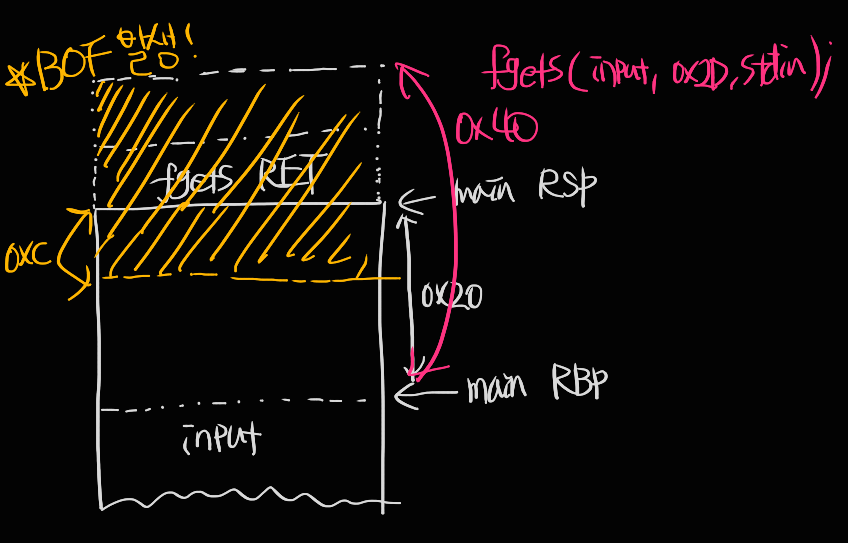 ☆BOF 발생!
fgets(input, 0x2D, stdin);
0x40
fgets RET
main RSP
0xC
0x20
main RBP
input